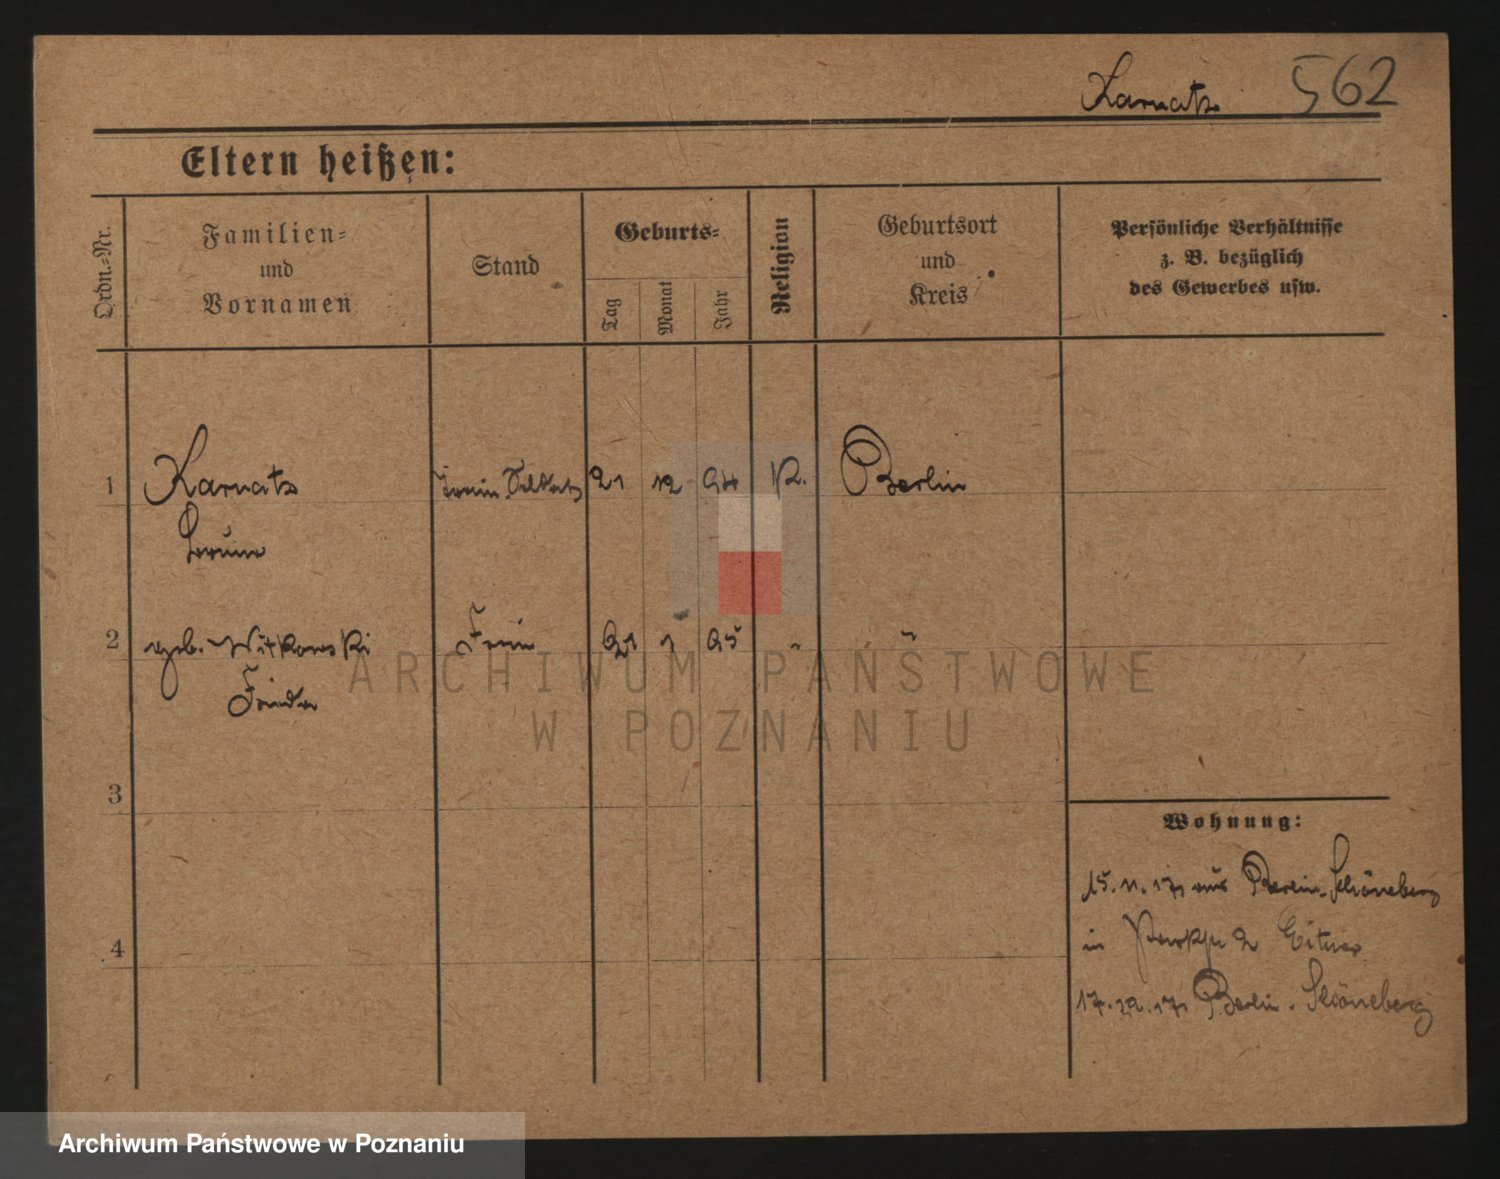 Karnatz 562
Eltern heißen:
Ordn.=Nr.
Familien=
und
Vornamen
Stand
Geburts=
Tag
Monat
Jahr
Religion
Geburtsort
und
Kreis
Persönliche Verhältnisse
z. B. bezüglich
des Gewerbes usw.
1 Karnatz 21 12 94 K. Berlin
Bruno
2 geb. Witkowski Frau 21 1 95 " "
Frieda
3
4
Wohnung:
15. 11. 17 aus Berlin-Schöneberg
in 2
17. 12. 17 Berlin-Schöneberg
ARCHIWUM PAŃSTWOWE
W POZNANIU
Archiwum Państwowe w Poznaniu